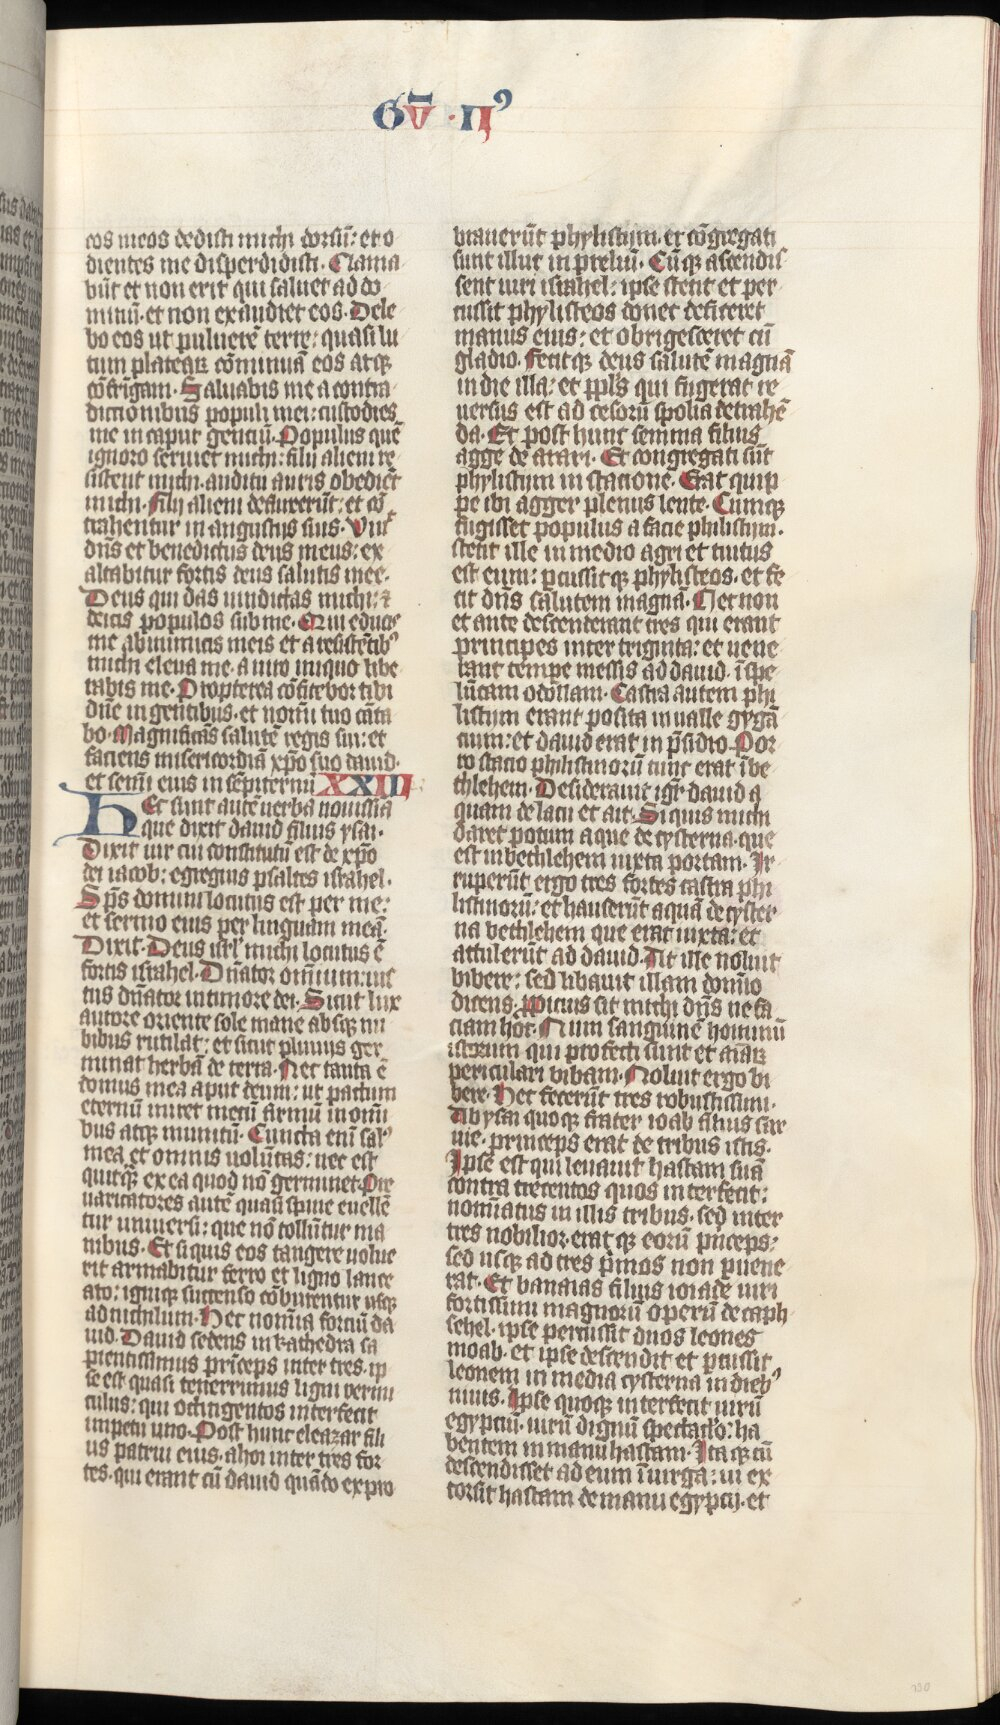 Gū · IIꝰ
eos meos dedisti michi dorsū: et o
dientes me disperdidisti. Clama
būt et non erit qui saluet ad do
minū. et non exaudiet eos. Dele
bo eos ut puluerē terre: quasi lu
tum plateaꝝ cōminuā eos atqꝫ
cōfrigam. Saluabis me a contra
dictionibus populi mei: custodies
me in caput gentiū. Populus quē
ignoro seruiet michi: filii alieni re
sistent michi. auditu auris obediēt
michi. Filii alieni defluxerūt: et cō
trahentur in angustiis suis. Viuit
dn̄s et benedictus deus meus: ex
altabitur fortis deus salutis mee.
Deus qui das uindictas michi: ⁊
deicis populos sub me. Qui educis
me ab inimicis meis et a resistētibꝰ
michi eleua me. a uiro iniquo libe
rabis me. Propterea cōfitebor tibi
dn̄e in gentibus. et nomī tuo cāta
bo. Magnificās salutē regis sui: et
faciens misericordiā xp̄o suo dauid.
et semī eius in sēpiternū XXIII
Hec sunt autē uerba nouissīa
que dixit dauid filius ysai.
Dixit uir cui constitutū est de xp̄o
dei iacob: egregius psaltes israhel.
Sp̄s domini locutus est per me:
et sermo eius per linguam meā.
Dixit. Deus isrl' michi locutus ē
fortis israhel. Dn̄ator om̄ium: ius
tus dn̄ator in timore dei. Sicut lux
aurore oriente sole mane absqꝫ nu
bibus rutilat: et sicut pluuiis ger
minat herbā de terra. Nec tanta ē
domus mea aput deum: ut pactum
eternū iniret mecū firmū in om̄i
bus atqꝫ munitū. Cuncta eni sal'
mea et omnis uolūtas: nec est
quitqꝫ ex ea quod nō germinet. Pre
uaricatores autē quasi spine euellē
tur uniuersi: que nō tollūtur ma
nibus. Et si quis eos tangere uolue
rit armabitur ferro et ligno lance
ato: igniqꝫ succenso cōburentur usqꝫ
ad nichilum. Hec nomīa fortiū da
uid. Dauid sedens in kathedra sa
pientissimus prīceps inter tres. ip
se est quasi tenerrimus ligni vermi
culus: qui octingentos interfecit
impetu uno. Post hunc eleazar fili
us patrui eius. ahoi inter tres for
tes. qui erant cū dauid quādo expro
brauerūt phylistijm. et cōgregati
sunt illuc in preliū. Cūqꝫ ascendis
sent uiri israhel: ipse stetit et per
cussit phylisteos donec deficeret
manus eius: et obrigesceret cū
gladio. Fecitqꝫ deus salutē magnā
in die illa: et pp̄ls qui fugerat re
uersus est ad cesorū spolia detrahē
da. Et post hunc semma filius
agge de arari. Et congregati sūt
phylistijm in stacione. Erat quip
pe ibi agger plenus lente. Cumqꝫ
fugisset populus a facie philistijm.
stetit ille in medio agri et tuitus
est eum: ꝑcussitqꝫ phylisteos. et fe
cit dn̄s salutem magnā. Nec non
et ante descenderant tres qui erant
principes inter triginta: et uene
rant tempe messis ad dauid. ī spe
lūcam odollam. Castra autem phi
listijm erant posita in ualle gygā
tium: et dauid erat in p̄sidio. Por
ro stacio philistinorū tunc erat ī be
thlehem. Desiderauit igr dauid a
quam de lacu et ait. Si quis michi
daret potum aque de cysterna. que
est in bethlehem iuxta portam. Ir
ruperūt ergo tres fortes castra phi
listinorū: et hauserūt aquā de cyster
na bethlehem que erat iuxta: et
attulerūt ad dauid. At ille noluit
bibere: sed libauit illam domīo
dicens. Ppicius sit michi dn̄s ne fa
ciam hoc. Num sanguinē hominū
istorum qui profecti sunt et aīaꝝ
periculari bibam. Noluit ergo bi
bere. Hec fecerūt tres robustissimi.
Abysai quoqꝫ frater ioab filius sar
uie. princeps erat de tribus istis.
Ipse est qui leuauit hastam suā
contra trecentos quos interfecit:
nomīatus in illis tribus. sed inter
tres nobilior. erat qꝫ eorū pn̄ceps:
sed usqꝫ ad tres p̄mos non puene
rat. Et banaias filius ioiade uiri
fortissimi magnorū operū de caph
sehel. ipse percussit duos leones
moab. et ipse descendit et ꝑcussit
leonem in media cysterna in diebꝰ
niuis. Ipse quoqꝫ interfecit uirū
egyptiū. uirū dignū spectac̄lo: ha
bentem in manu hastam. Ita qꝫ cū
descendisset ad eum ī uirga: ui ex
torsit hastam de manu egyptij. et